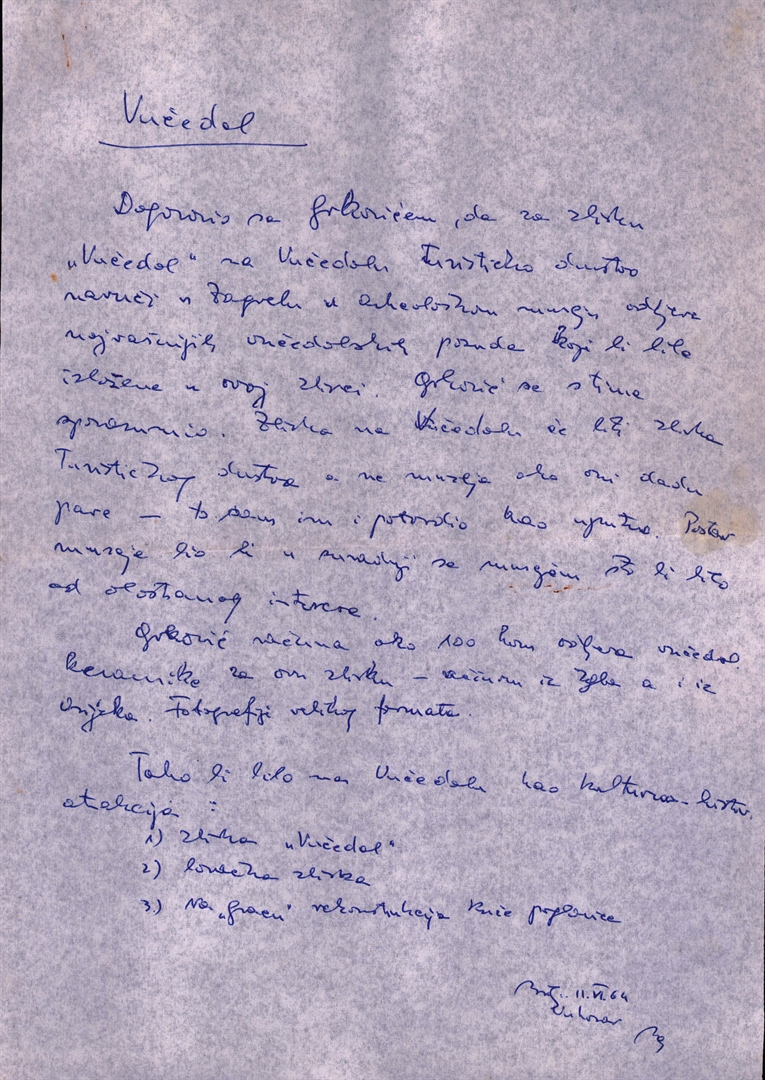 Vučedol
Dogovorio sa Grkovićem, da za zbirku
„Vučedol" na Vučedolu Turističko društvo
naruči u Zagrebu u arheološkom muzeju odljeve
najvažnijih vučedolskih posuda koji bi bile
izložene u ovoj zbirci. Grković se s time
sporazumio. Zbirka na Vučedolu će biti zbirka
Turističkog društva a ne muzeja ako oni dadu
pare — to sam im i potvrdio kao uputno. Postav
muzeja bio bi u suradnji sa muzejom što bi bilo
od obostranog interesa.
Grković računa oko 100 kom odljeva vučedol.
keramike za ovu zbirku — većinu iz Zgba a i iz
Osijeka. Fotografije velikog formata.
Tako bi bilo na Vučedolu kao kulturno-histor.
atrakcija :
1) zbirka „Vučedol"
2) lovačka zbirka
3.) na „gracu" rekonstrukcija kuće poglavice
11.VI.64
Vukovar